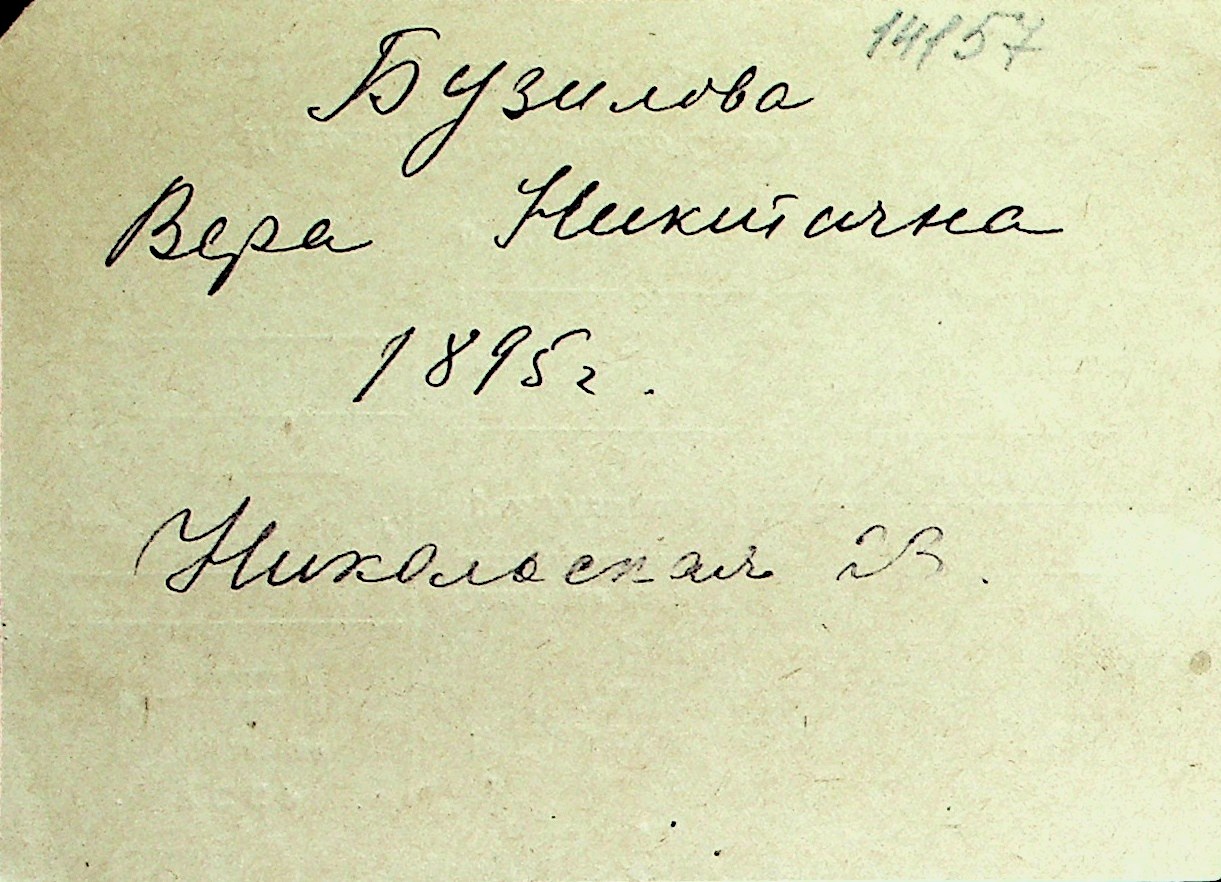 14157
Бузилова
Вера Никитична
1895г.
Никольская